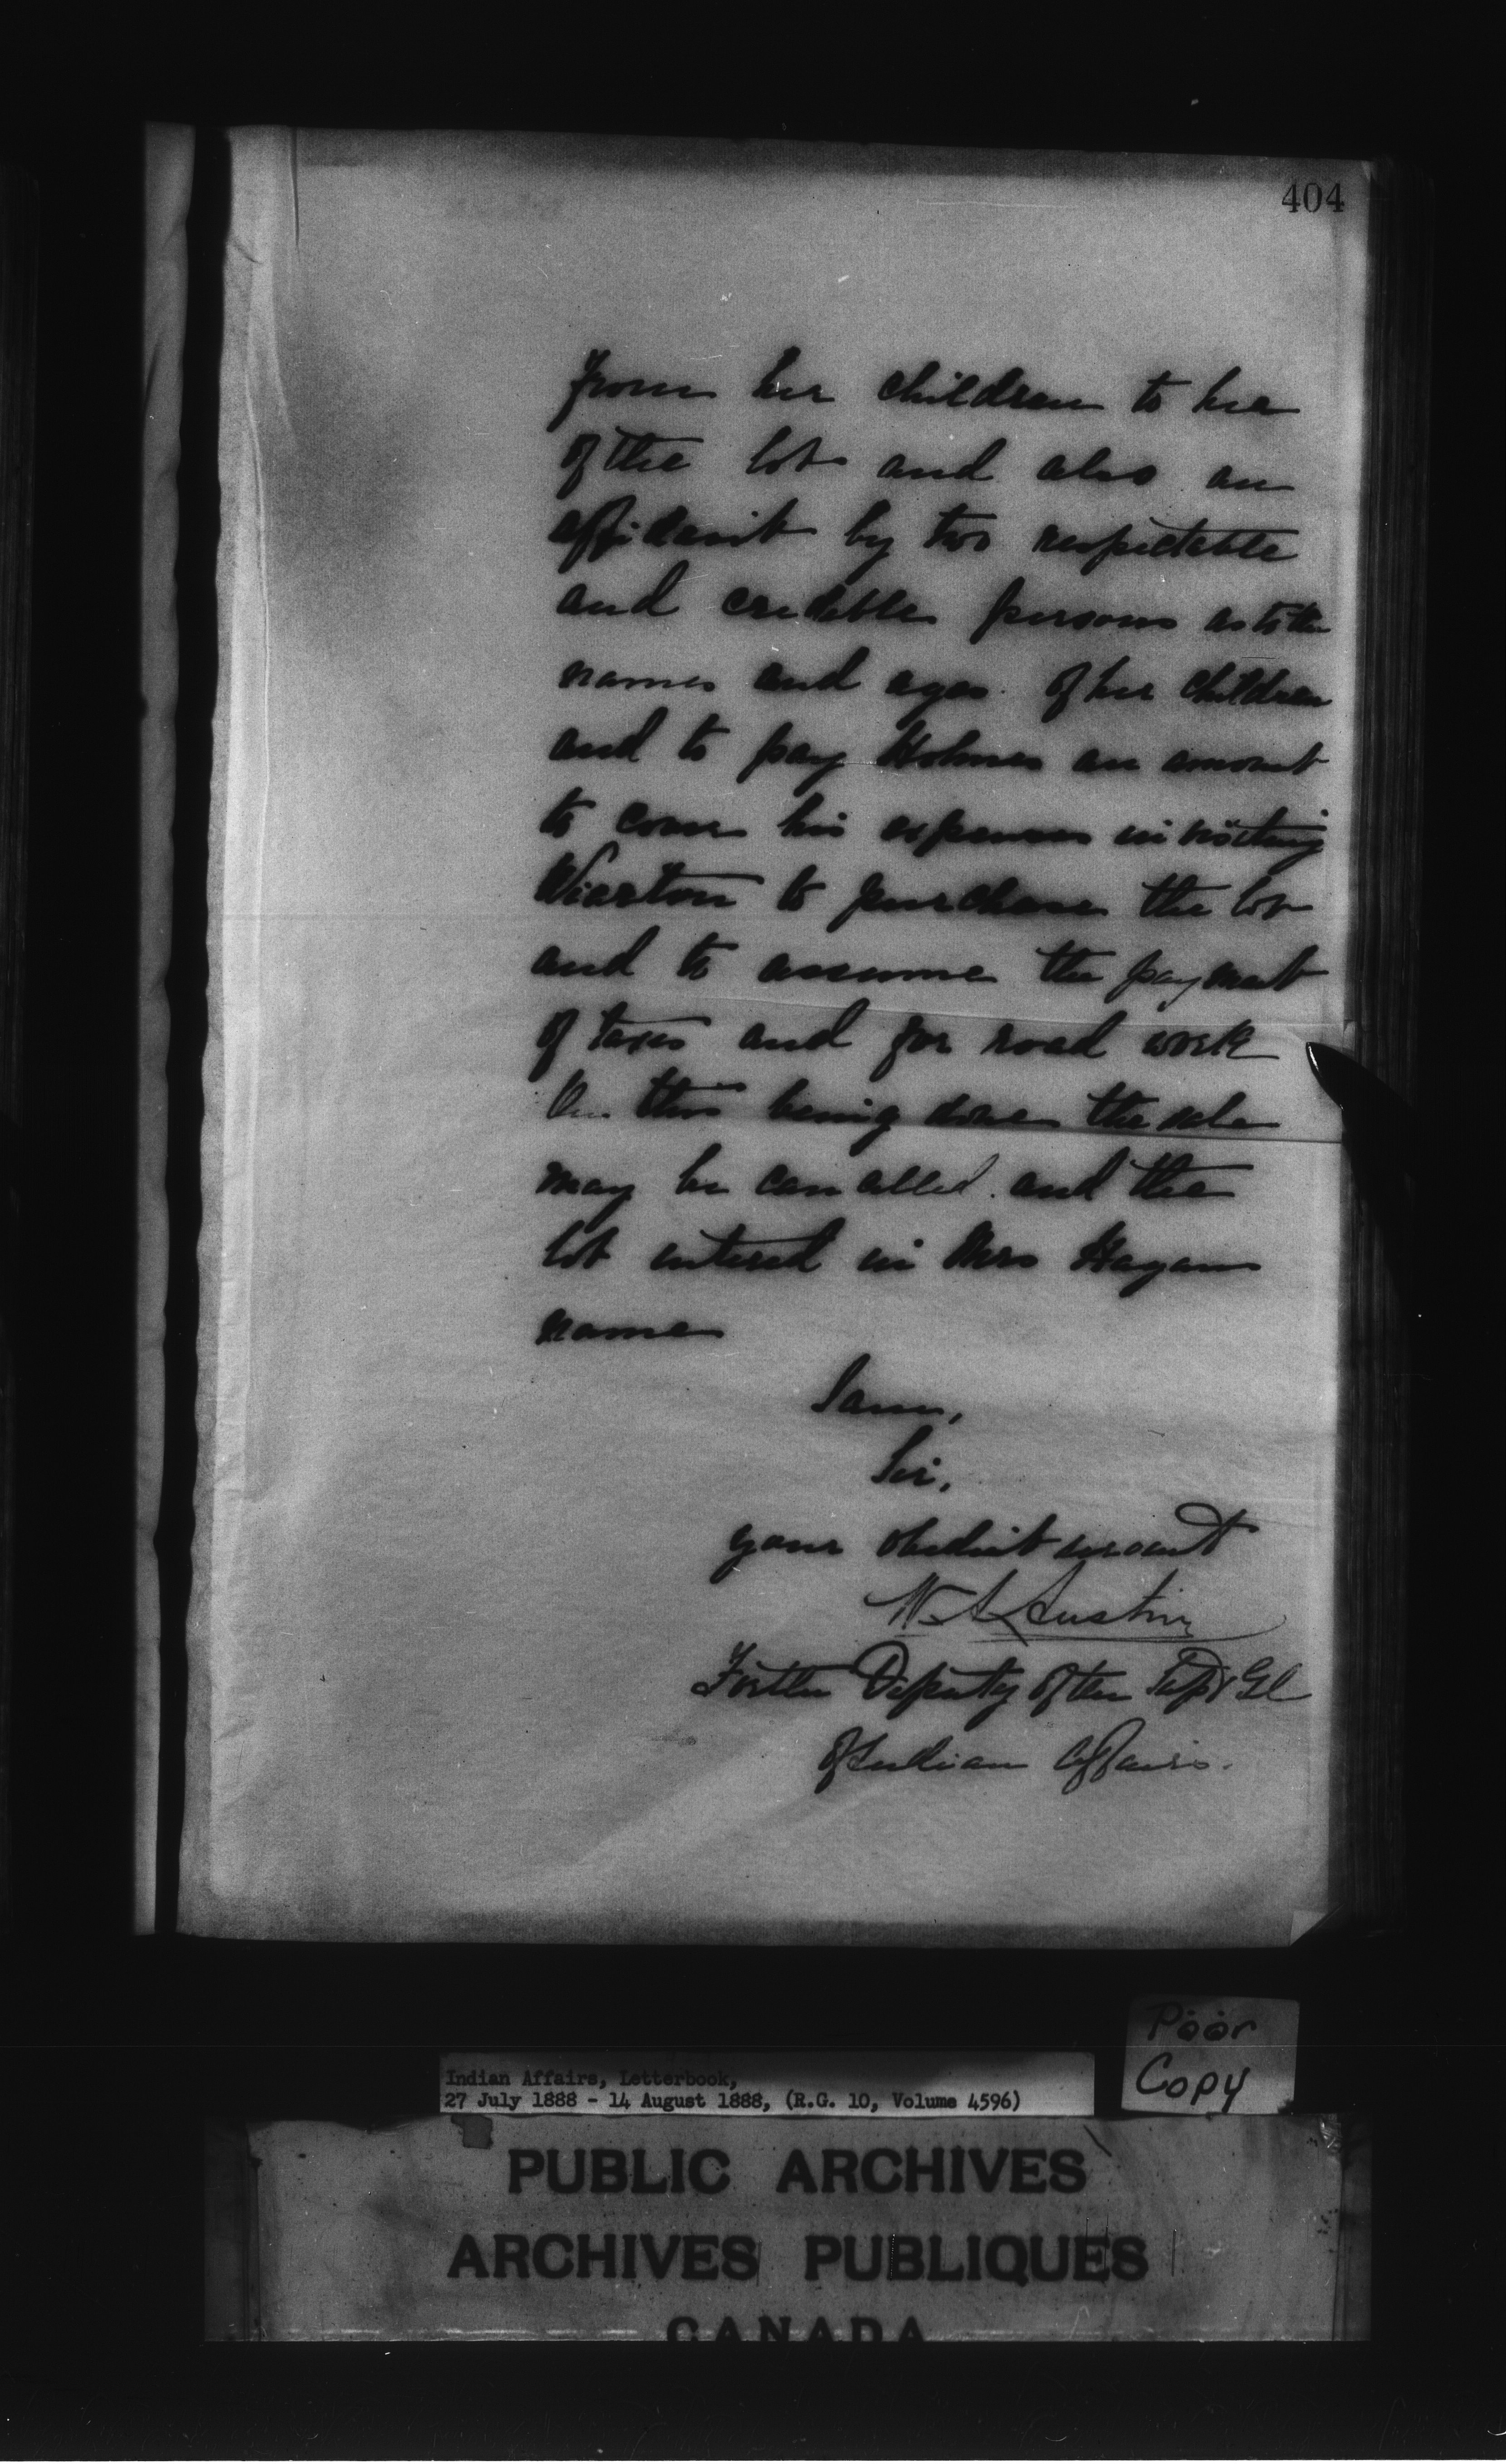 404
from her children to her
of the lot and also an
affidavit by two respectable
and credible persons as to the
names and ages of her children
and to pay Holmes an amount
to cover his expenses in visiting
Wiarton to purchase the lot
and to assume the payment
of taxes and for road work
On this being done the sale
may be cancelled and the
lot entered in Mrs Hagans
name
I am,
Sir,
your obedient servant
W. A. Austin
For the Deputy of the Supt Gl
of Indian Affairs.
Poor
Copy
Indian Affairs, Letterbook,
27 July 1888 - 14 August 1888, (R.G. 10, Volume 4596)
PUBLIC ARCHIVES
ARCHIVES PUBLIQUES
CANADA